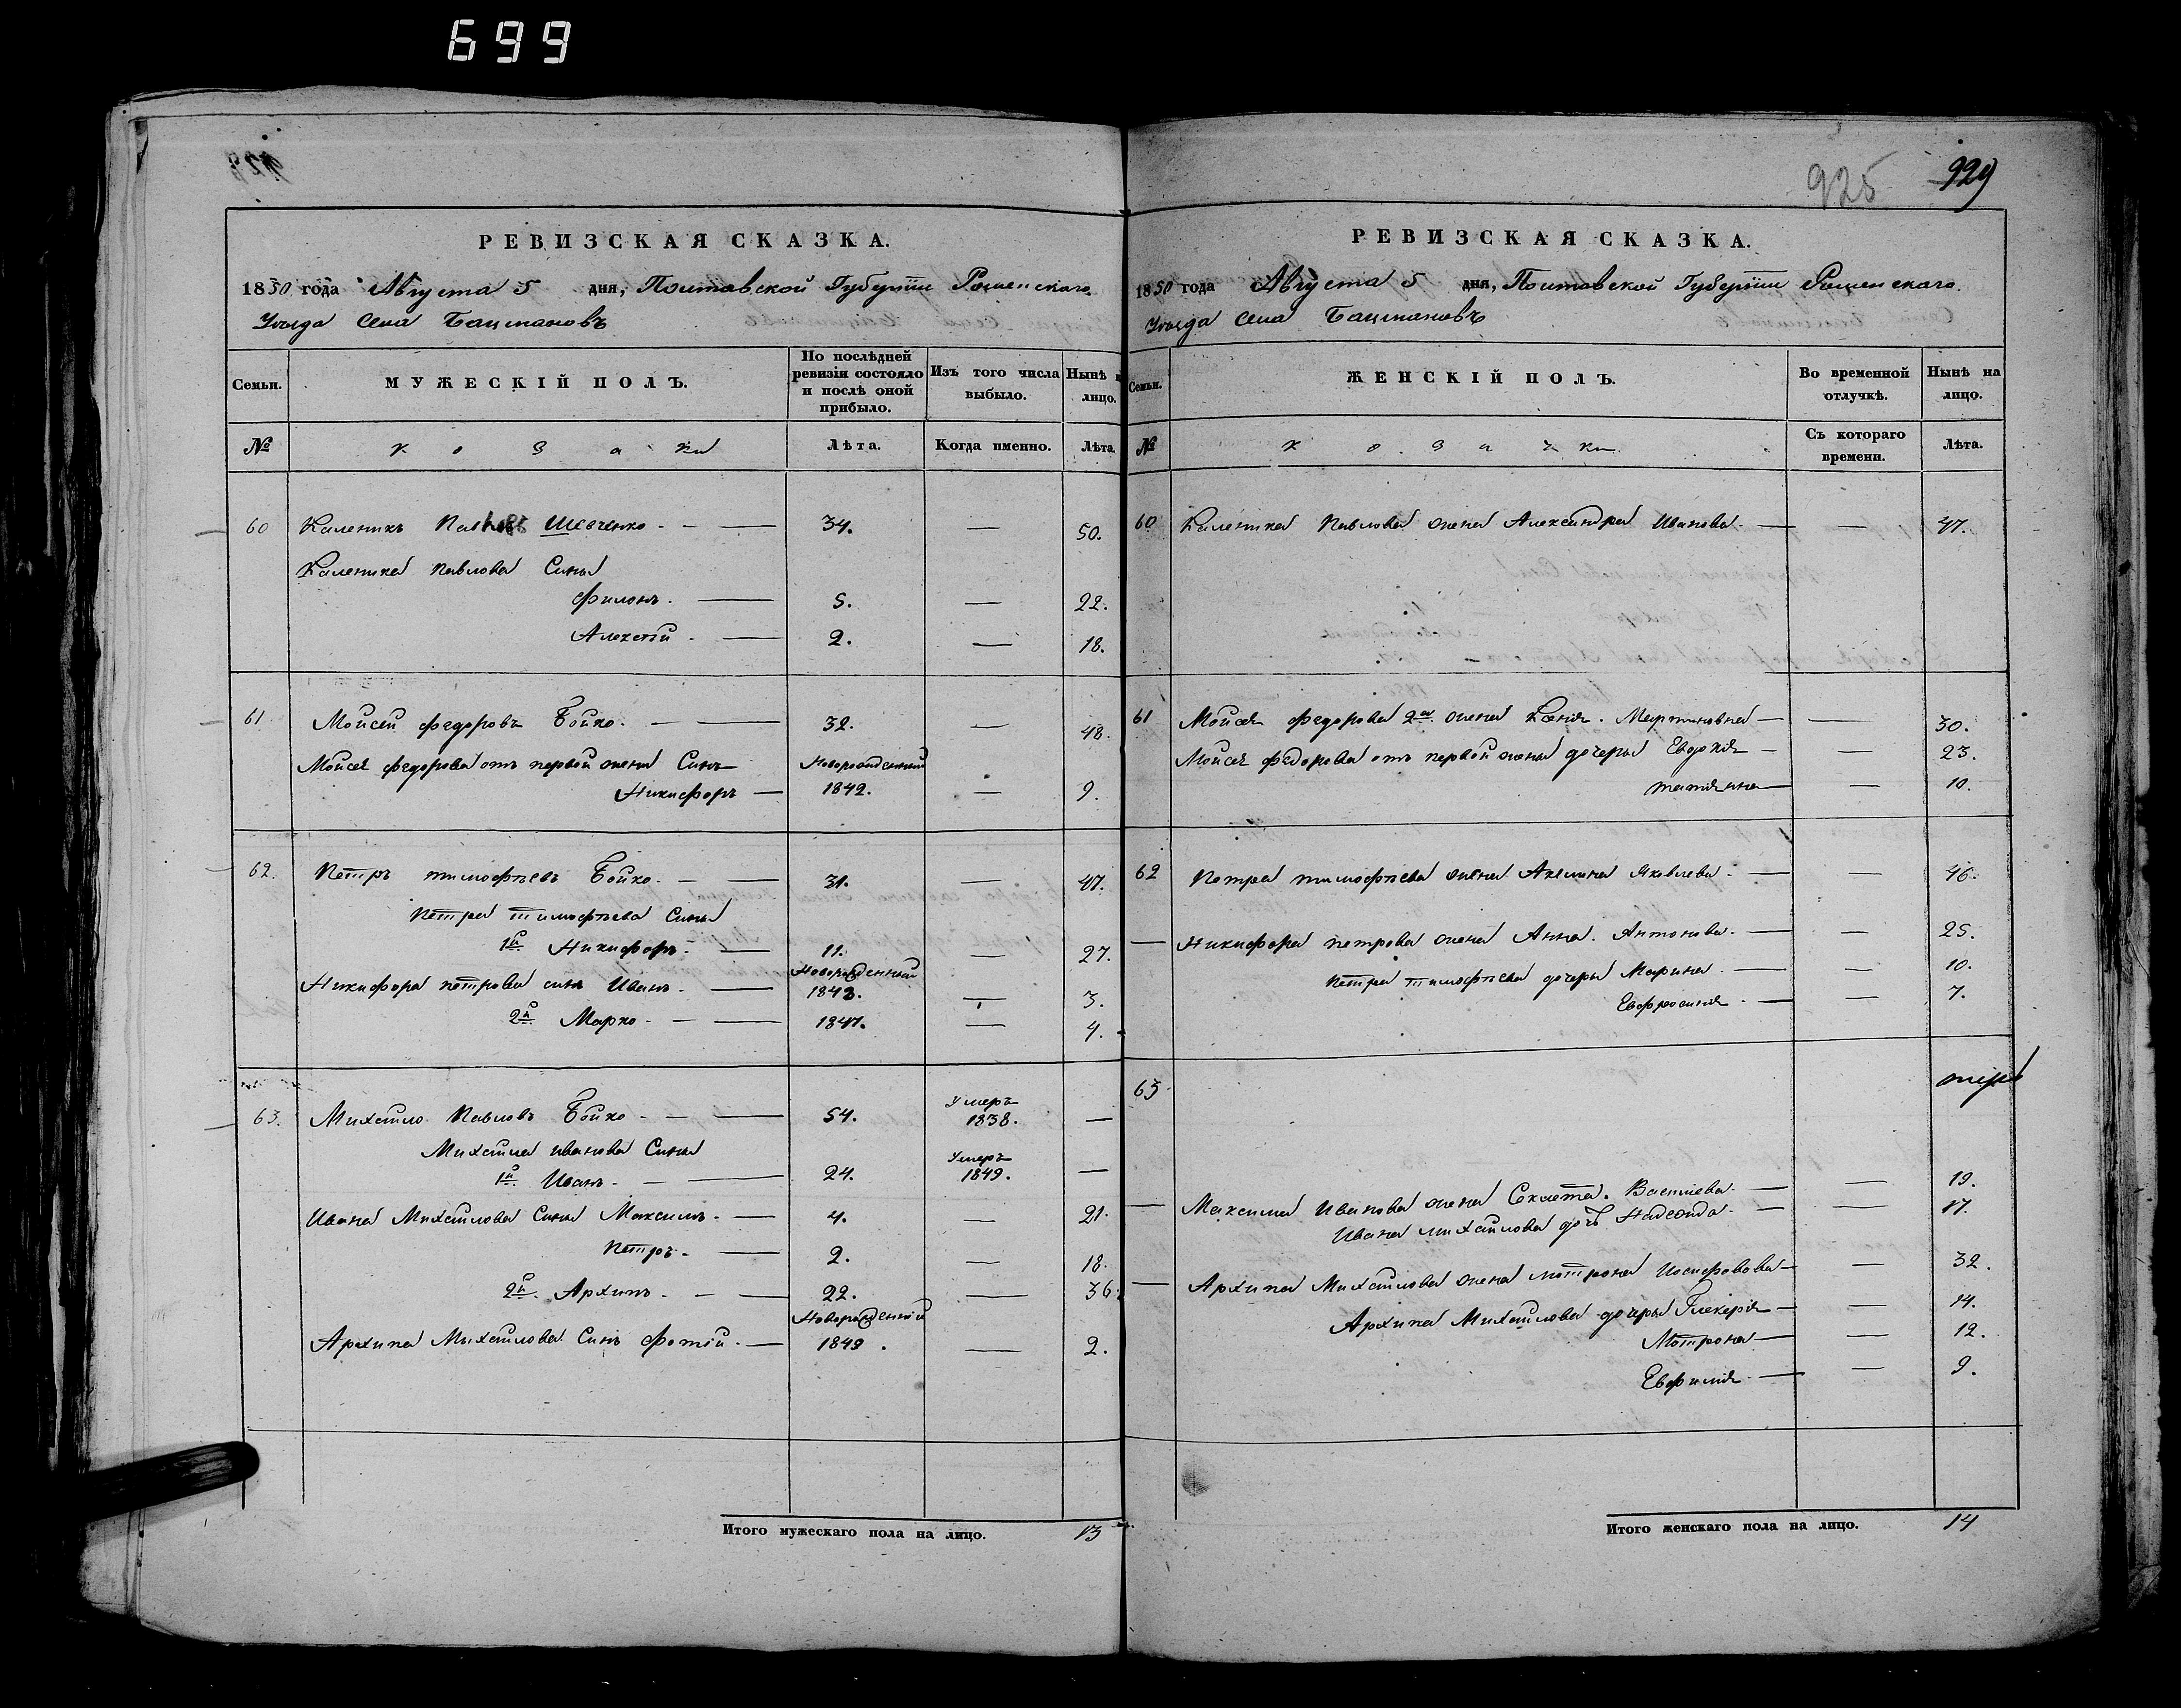 699
925 929
РЕВИЗСКАЯ СКАЗКА.
1850 года Августа 5 дня, Полтавской Губерніи Роменскаго
Уѣзда Села Бацмановъ
Семьи. МУЖЕСКІЙ ПОЛЪ. По послѣдней ревизіи состояло и послѣ оной прибыло. Изъ того числа выбыло. Нынѣ н лицо.
№ Козаки Лѣта. Когда именно. Лѣта.
60 Каленикъ Павловъ Шевченко 34. — 50.
Каленика Павлова Сины
Филонъ. 5. — 22.
Алексѣй 2. — 18.
61 Мойсей Федоровъ Бойко. 32. — 48.
Мойсея Федорова отъ первой жены Синъ Новорожденный
Никифоръ 1842. — 9.
62. Петръ Тимофѣевъ Бойко. 31. — 47.
Петра Тимофѣева Сины
1й Никифоръ. 11. — 27.
Новорожденный
Никифора Петрова синъ Иванъ. 1848. — 3.
2й Марко 1847. — 4.
63. Михайло Павловъ Бойко 54. Умеръ 1838. —
Михайла Иванова Сины
1й Иванъ. 24. Умеръ 1849. —
Ивана Михайлова Сины Максимъ. 4. — 21.
Петръ. 2. — 18.
2й Архипъ. 22. — 36.
Новорожденній
Архипа Михайлова Синъ Фотій. 1849. — 2.
Итого мужескаго пола на лицо. 13
РЕВИЗСКАЯ СКАЗКА.
1850 года Августа 5 дня, Полтавской Губерніи Роменскаго
Уѣзда Села Бацмановъ
Семьи. ЖЕНСКІЙ ПОЛЪ. Во временной отлучкѣ. Нынѣ на лицо.
№ Козачки Съ котораго времени. Лѣта.
60 Каленика Павлова жена Александра Иванова. — 47.
61 Мойсея Федорова 2я жена Ксенія. Мартиновна — 30.
Мойсея Федорова отъ первой жены дочеры Евдокія — 23.
Татіянна — 10.
62 Петра Тимофѣева жена Акелина Яковлева. — 46.
Никифора Петрова жена Анна. Антонова. — 25.
Петра Тимофѣева дочеры Марина. — 10.
Евфросинія. — 7.
63
Максима Иванова жена Секлета. Василева. — 19.
Ивана Михайлова дочь Надежда. — 17.
Архипа Михайлова жена Мотрона Иосифовова — 32.
Архипа Михайлова дочеры Гликерія — 14.
Мотрона — 12.
Евфимія. — 9.
Итого женскаго пола на лицо. 14